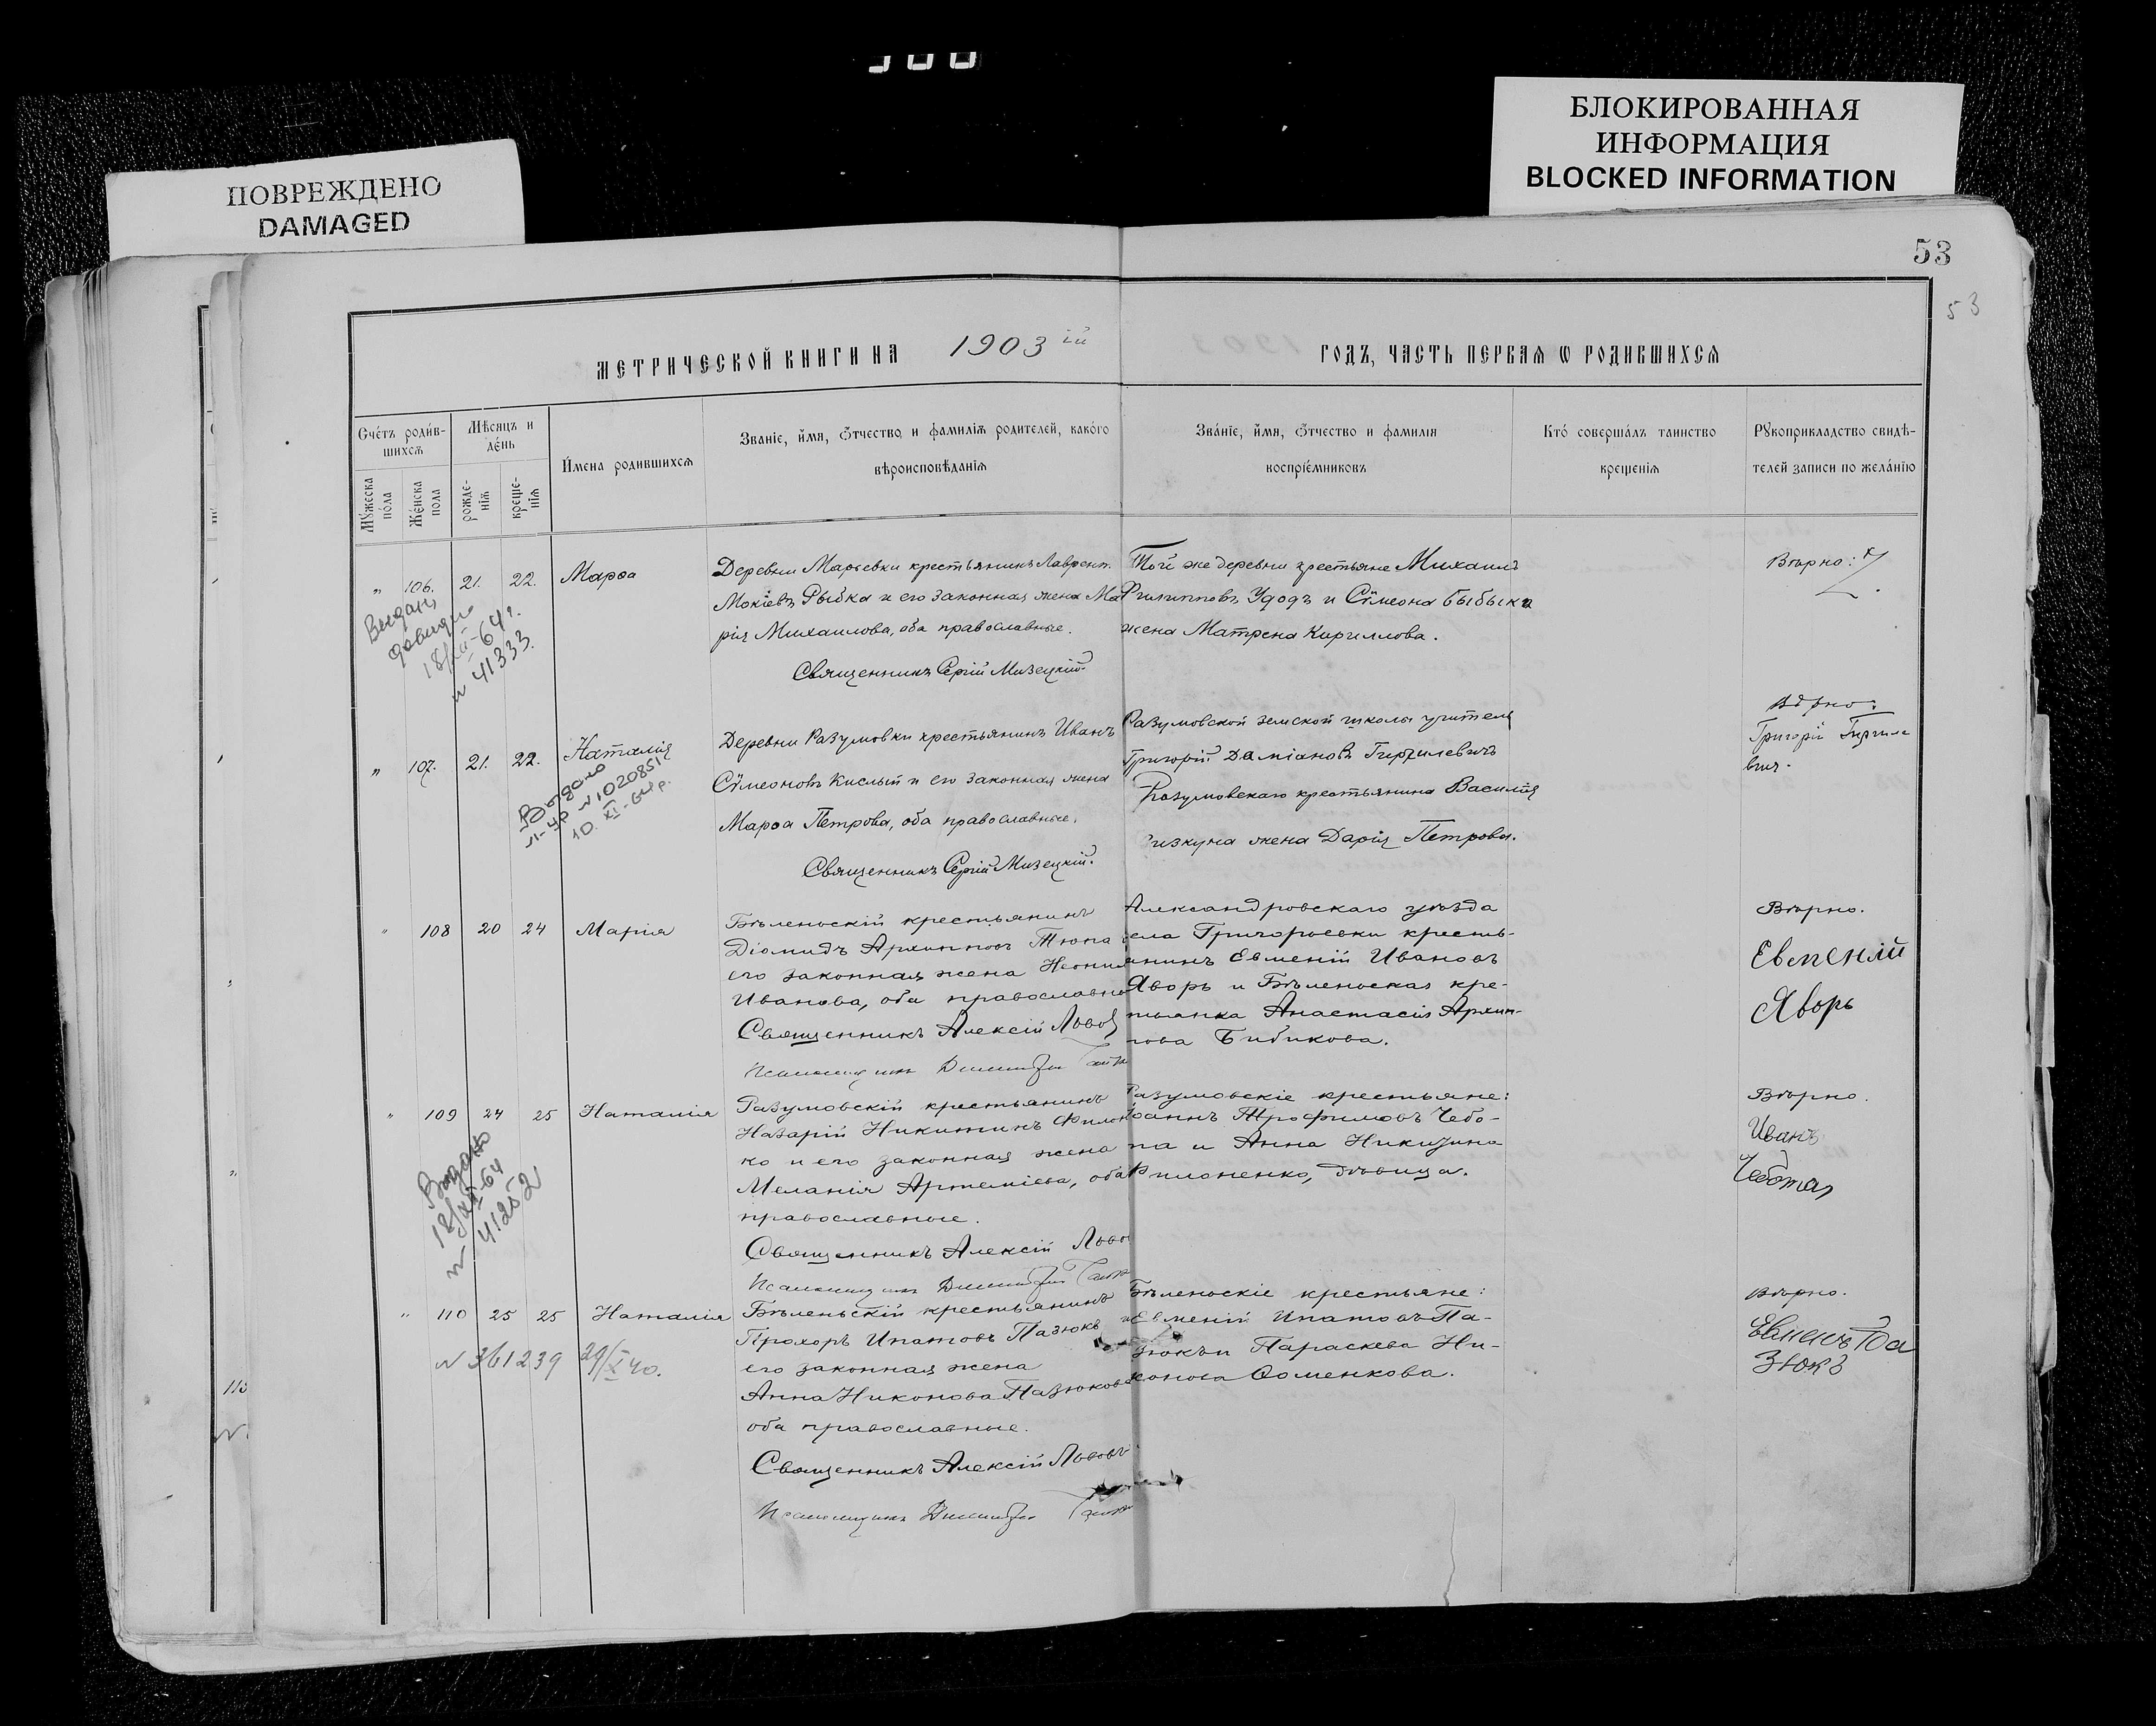 ПОВРЕЖДЕНО
DAMAGED
БЛОКИРОВАННАЯ
ИНФОРМАЦИЯ
BLOCKED INFORMATION
53
53
МЕТРИЧЕСКОЙ КНИГИ НА 1903 ій ГОДЪ, ЧАСТЬ ПЕРВАЯ Ѡ РОДИВШИХСЯ
Счетъ родившихся
Мужеска пола
Женска пола
Мѣсяцъ и день
рожденія
крещенія
Имена родившихся
Званіе, имя, отчество, и фамилія родителей, какого
вѣроисповѣданія
Званіе, имя, отчество и фамилія
воспріемниковъ
Кто совершалъ таинство
крещенія
Рукоприкладство свидѣ-
телей записи по желанію
" 106. 21. 22. Марѳа
Деревни Марьевки крестьянинъ Лаврент.
Мокіевъ Рыбка и его законная жена Ма
рія Михаилова, оба православные.
Священникъ Сергій Мизецкій
Той же деревни крестьяне Михаилъ
Филипповъ Удодъ и Сѵмеона Быбыка
жена Матрена Кириллова.
Вѣрно:
18/XII-64г.
N 41333.
" 107. 21. 22. Наталія
Выдано
N 020851
10. XI-64р.
Деревни Разумовки крестьянинъ Иванъ
Сѵмеоновъ Кислый и его законная жена
Марѳа Петрова, оба православные.
Священникъ Сергій Мизецкій.
Разумовской земской школы учитель
Григорій Даміановъ
Разумовскаго крестьянина Василія
жена Дарія Петрова.
Вѣрно:
Григорій
вичъ.
" 108 20 24 Марія
Бѣленьскій крестьянинъ
Діомидъ Архиповъ Тюпа
его законная жена
Иванова, оба православны
Священникъ Алексій Львов
Псаломщикъ Димитрій
Александровскаго уѣзда
села Григорьевки кресть-
янинъ Евменій Ивановъ
Яворъ и Бѣленьская кре-
тьянка Анастасія Архип-
пова Бибикова.
Вѣрно.
Евменій
Яворъ
" 109 24 25 Наталія
Выдано
18/XII-64
N 41252
Разумовскій крестьянинъ
Назарій Никитинъ Филон
ко и его законная жена
Меланія Артеміева, оба
православные.
Священникъ Алексій Льво
Псаломщикъ Димитрій
Разумовскіе крестьяне:
Іоаннъ Трофимовъ Чебо-
та и Анна Никитина
Филоненко, дѣвица.
Вѣрно.
Иванъ
Чеботая
" 110 25 25 Наталія
N 361239 29/X 40.
Бѣленьскій крестьянинъ
Прохоръ Ипатовъ Пазюкъ и
его законная жена
Анна Никонова Пазюкова
оба православные.
Священникъ Алексій Львовъ
Псаломщикъ Димитрій
Бѣленьскіе крестьяне:
Евменій Ипатовъ Па-
зюкъ и Параскева Ни-
конова Ѳоменкова.
Вѣрно.
Евменъ Па
зюкъ